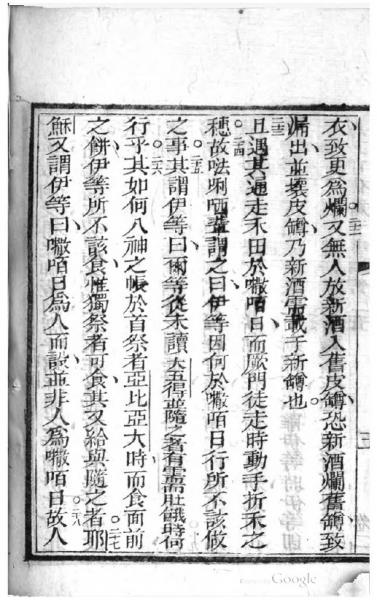 衣致更爲爛。二二又無人放新酒入舊皮罇恐新酒爛舊罇致
漏出並壞皮罇乃新酒需載于新罇也。
二三且遇其過走禾田於𠾭咟日而厥門徒走時動手折禾之
穗。二四故𠵽唎哂輩謂之曰伊等因何於𠾭咟日行所不該做
之事。二五其謂伊等曰爾等從未讀大五得並隨之者有需肚餓時何
行乎。二六其如何入神之帳於首祭者亞比亞大時而食面前
之餅伊等所不該食惟獨祭者可食其又給與隨之者耶。二七
穌又謂伊等曰𠾭咟日爲人而設並非人爲𠾭咟日。二八故人
三
Google